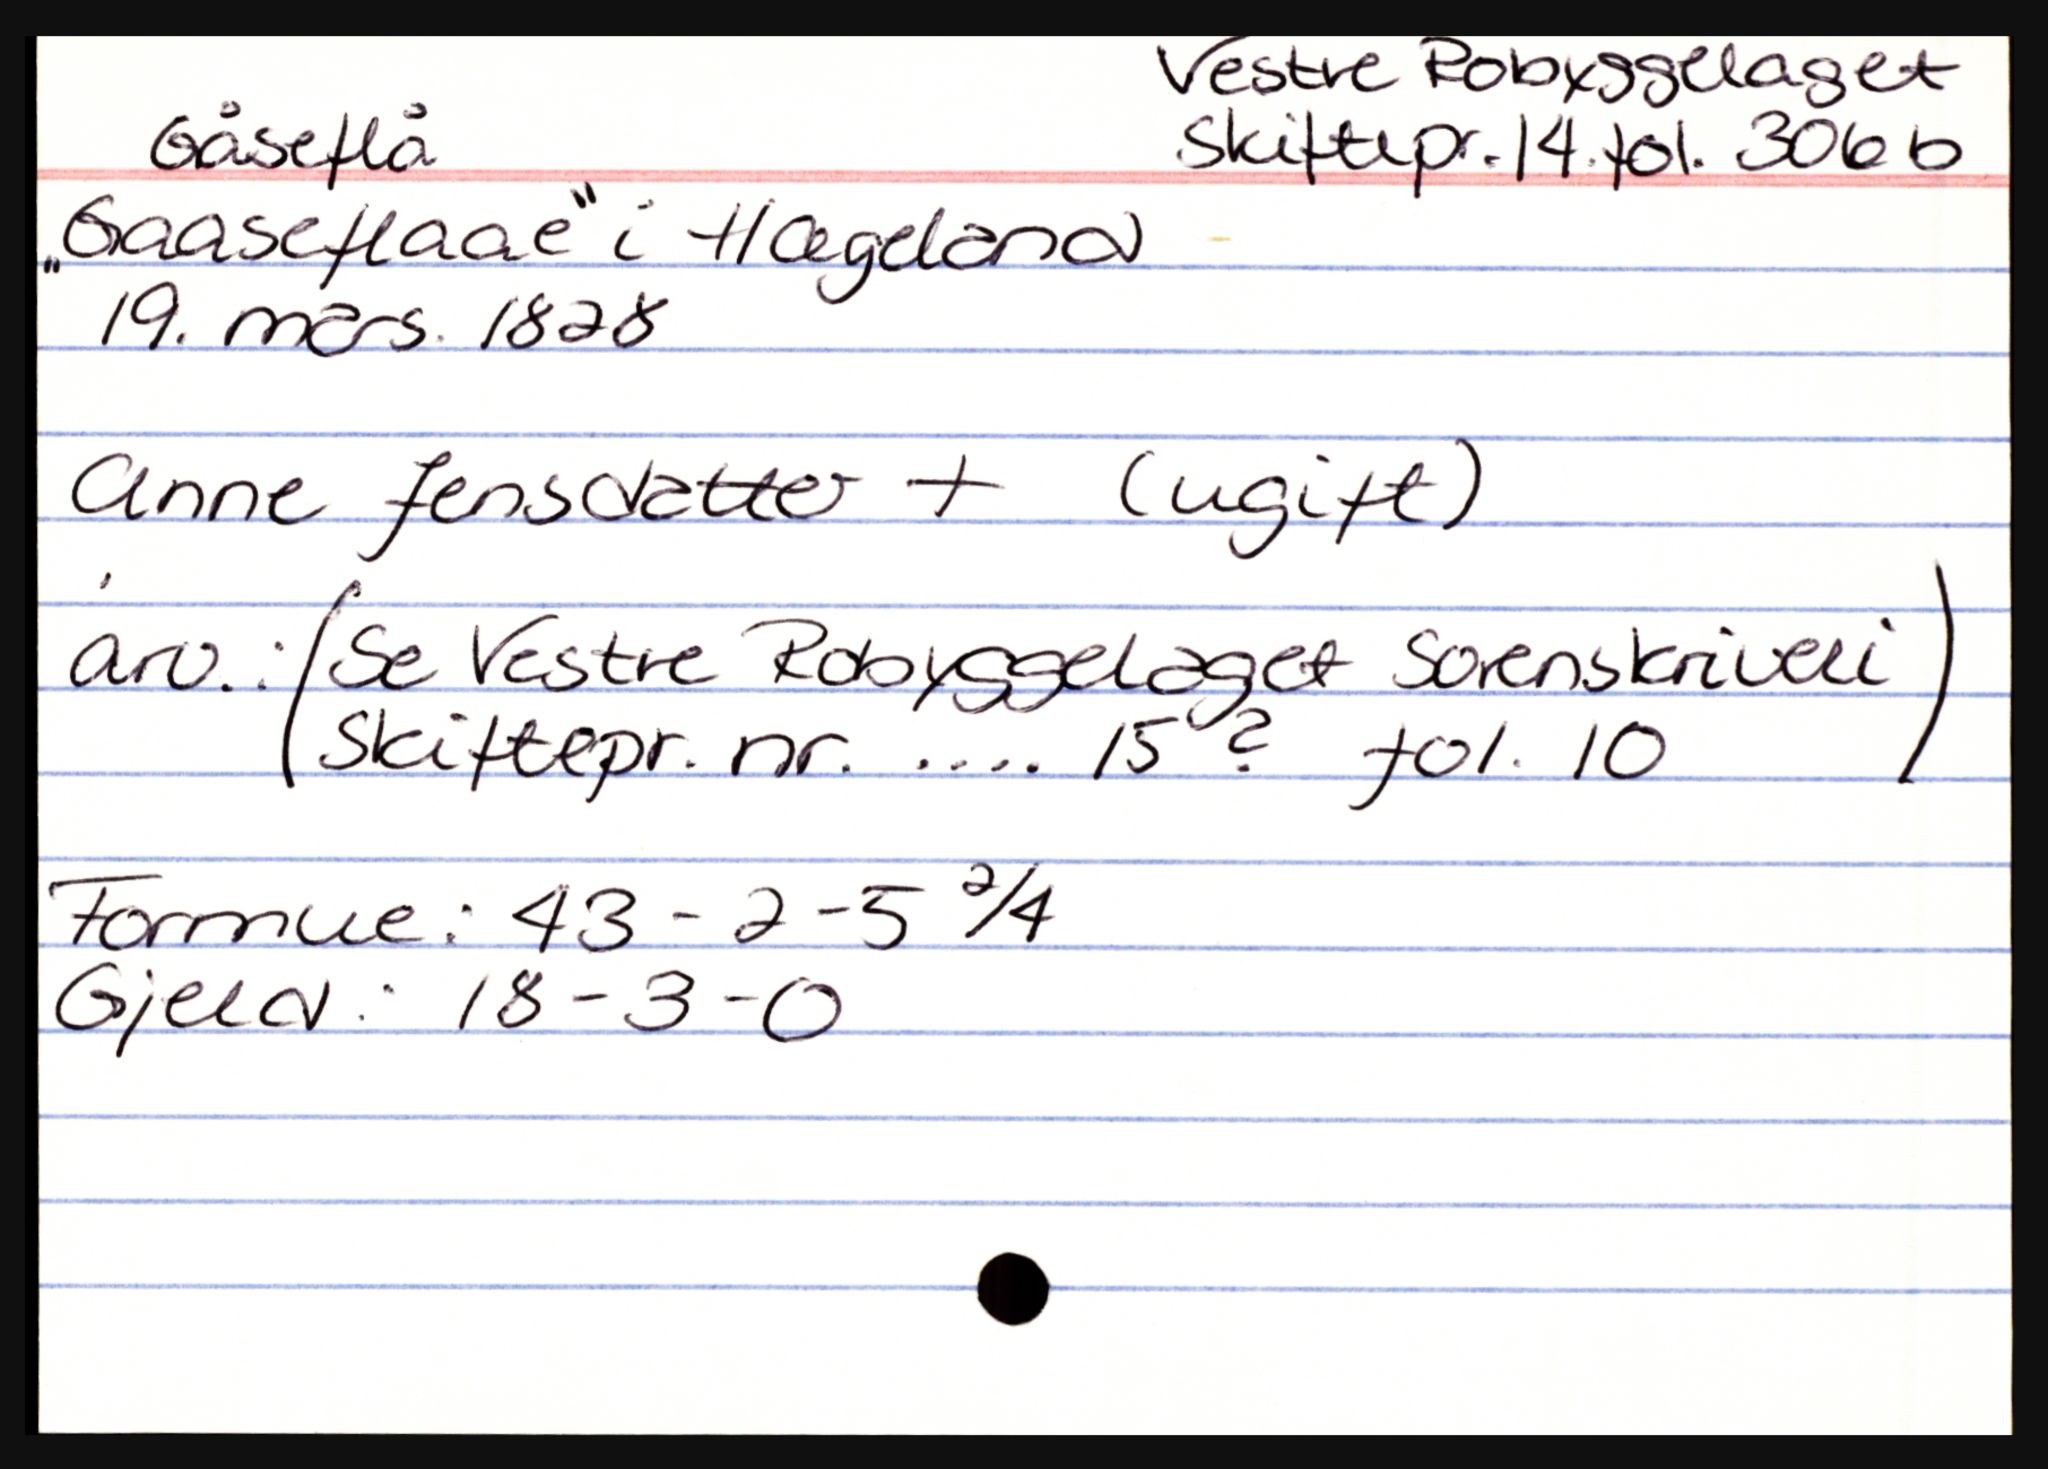 Vestre Robyggelaget
Gåseflå
Skiftepr. 14. fol. 306 b
„Gaaseflaae" i Hægeland
19. mars. 1828
Anne Jensdatter + (ugift)
arv.: (Se Vestre Robyggelaget Sorenskriveri
Skiftepr. nr. .... 15? fol. 10)
Formue: 43 - 2 - 5 2/4
Gjeld: 18 - 3 - 0